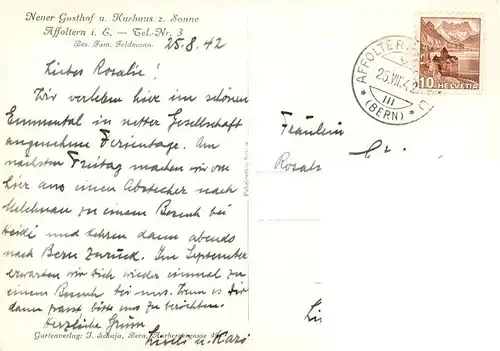 Neuer Gasthof u. Kurhaus z. Sonne
Affoltern i. E. — Tel.-Nr. 3
Bes. Fam. Feldmann.
25.8.42
Liebes Rosalie!
Wir verleben hier im schönen
Emmental in netter Gesellschaft
angenehme Ferientage. Am
nächsten Freitag machen wir von
hier aus einen Abstecher nach
Melchnau zu einem Besuch bei
Heidi und kehren dann abends
nach Bern zurück. Im September
erwarten wir Dich wieder einmal zu
einem Besuch bei uns. Wenn es Dir
dann passt bitte uns zu berichten.
Herzliche Grüsse
u.
Gartenverlag: J. Schaja, Bern,
AFFOLTERN
(BERN)
III
10 HELVETIA
Fräulein
Rosal